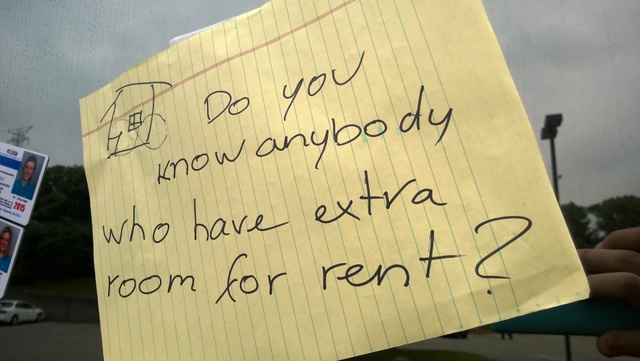 Do you
know anybody
who have extra
room for rent?
2015